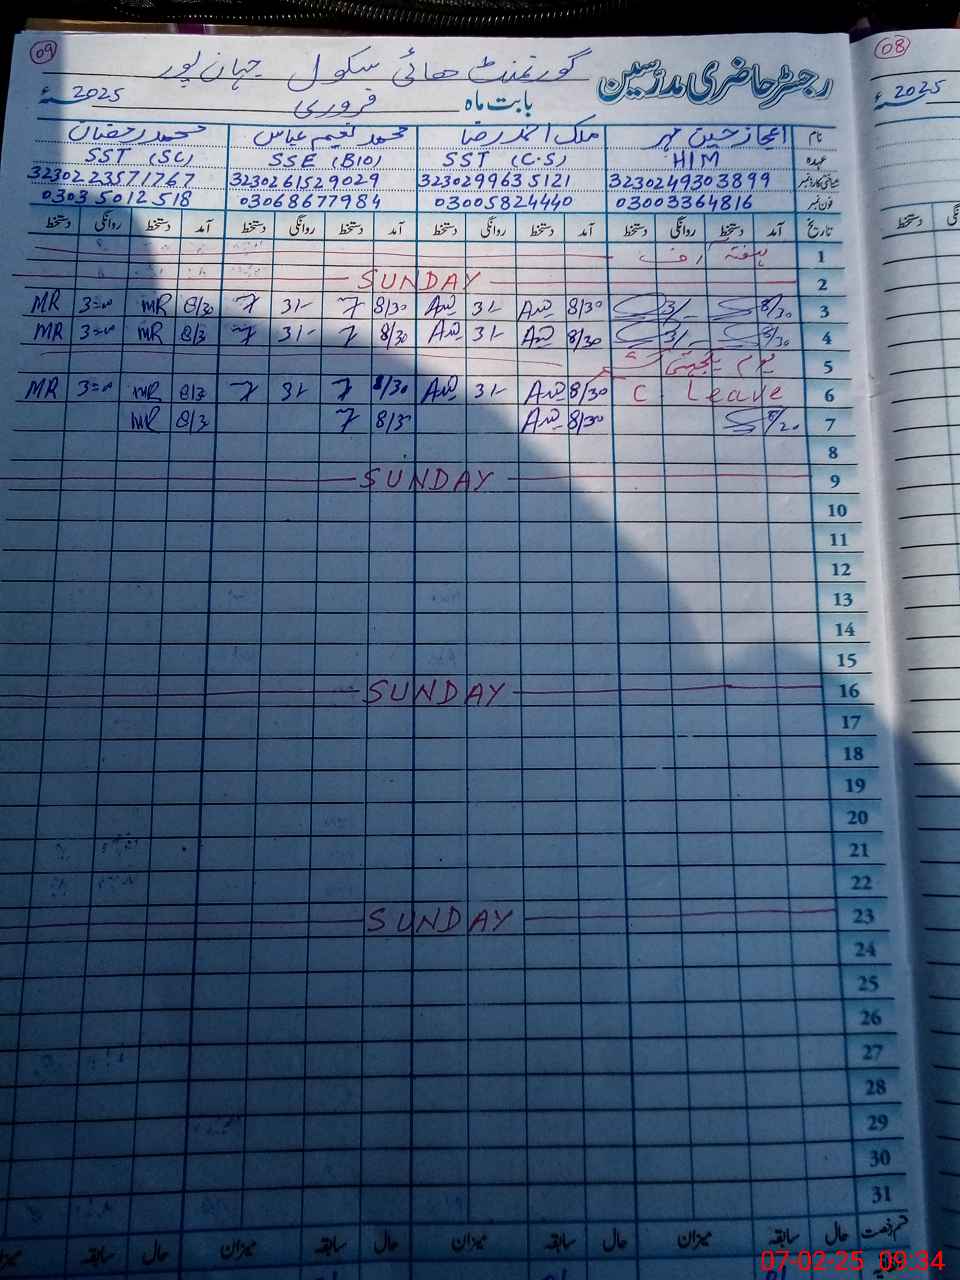 09
08
گورنمنٹ ھائی سکول جہان پور
رجسٹر حاضری مدرسین
بابت ماہ فروری 2025ء
2025ء
نام اعجاز حسین مہر ملک احمد رضا محمد نعیم عباس محمد رمضان
عہدہ H1M SST (C.S) SSE (B10) SST (SC)
شناختی کارڈ نمبر 3230249303899 3230299635121 3230261529029 3230223571767
فون نمبر 03003364816 03005824440 03068677984 03035012518
تاریخ آمد دستخط روانگی دستخط آمد دستخط روانگی دستخط آمد دستخط روانگی دستخط آمد دستخط روانگی دستخط
دستخط
1 ہفتہ
2 SUNDAY
3 8/30 3/- 8/30 3/- 8/30 3/- 8/30 MR MR
4 8/30 3/- 8/30 3/- 8/30 3/- 8/3 MR MR
5 یوم یکجہتی
6 C. Leave 8/30 3/- 8/30 3/- 8/3 MR MR
7 8/30 8/3 MR
8
9 SUNDAY
10
11
12
13
14
15
16 SUNDAY
17
18
19
20
21
22
23 SUNDAY
24
25
26
27
28
29
30
31
قسم رخصت حال سابقہ میزان حال سابقہ میزان حال سابقہ میزان حال سابقہ میزان
07-02-25 09:34